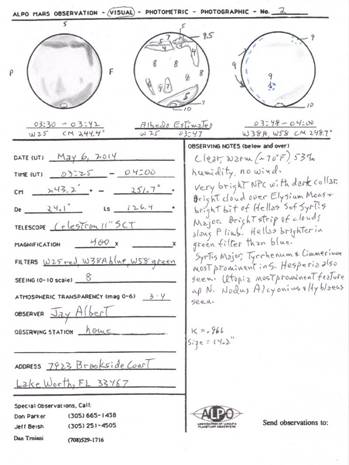 ALPO MARS OBSERVATION - VISUAL - PHOTOMETRIC - PHOTOGRAPHIC - No. 2
5
P F
10
03:30 - 03:42
W25 CM 244.4°
5 9.5
7
8 8 8
10
Albedo Estimates
W25 03:47
9 9
9
10
03:48 - 04:00
W38A, W58 CM 248.7°
DATE (UT) May 6, 2014
TIME (UT) 03:25 - 04:00
CM 243.2° - 251.7°
De 24.1° Ls 126.4 °
TELESCOPE Celestron 11" SCT
MAGNIFICATION 400 X X
FILTERS W25 red, W38A blue, W58 green
SEEING (0-10 scale) 8
ATMOSPHERIC TRANSPARENCY (mag 0-6) 3-4
OBSERVER Jay Albert
OBSERVING STATION home
ADDRESS 7923 Brookside Court
Lake Worth, FL 33467
Special Observations, Call:
Don Parker (305) 665-1438
Jeff Beish (305) 251-4505
Dan Troiani (708)529-1716
OBSERVING NOTES (below and over)
Clear, warm (~70°F) 53%
humidity, no wind.
Very bright NPC with dark collar.
Bright cloud over Elysium Mons +
bright bit of Hellas S of Syrtis
Major. Bright strip of clouds
along P limb. Hellas brighter in
green filter than blue.
Syrtis Major, Tyrrhenum & Cimmerium
most prominent in S. Hesperia also
seen. Utopia most prominent feature
up N. Nodus Alcyonius & Hyblaeus
seen.
K = .966
Size = 14.2"
ALPO
Send observations to: